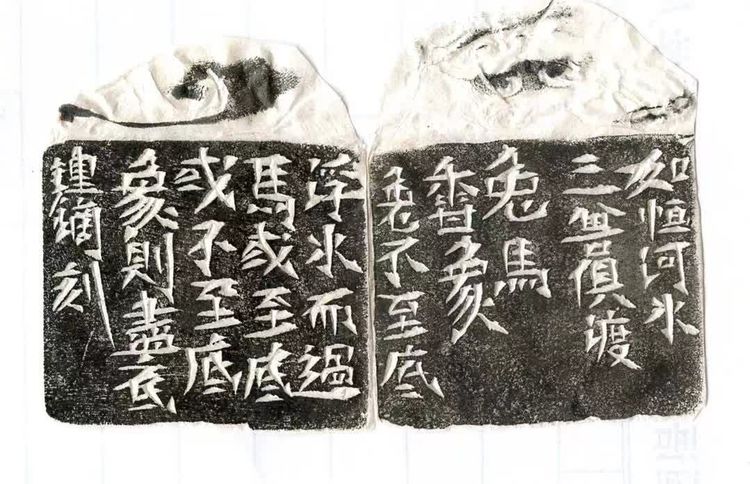 如恒河水
三獸俱渡
兔馬
香象
兔不至底
浮水而過
馬或至底
或不至底
象則盡底
鏑刻